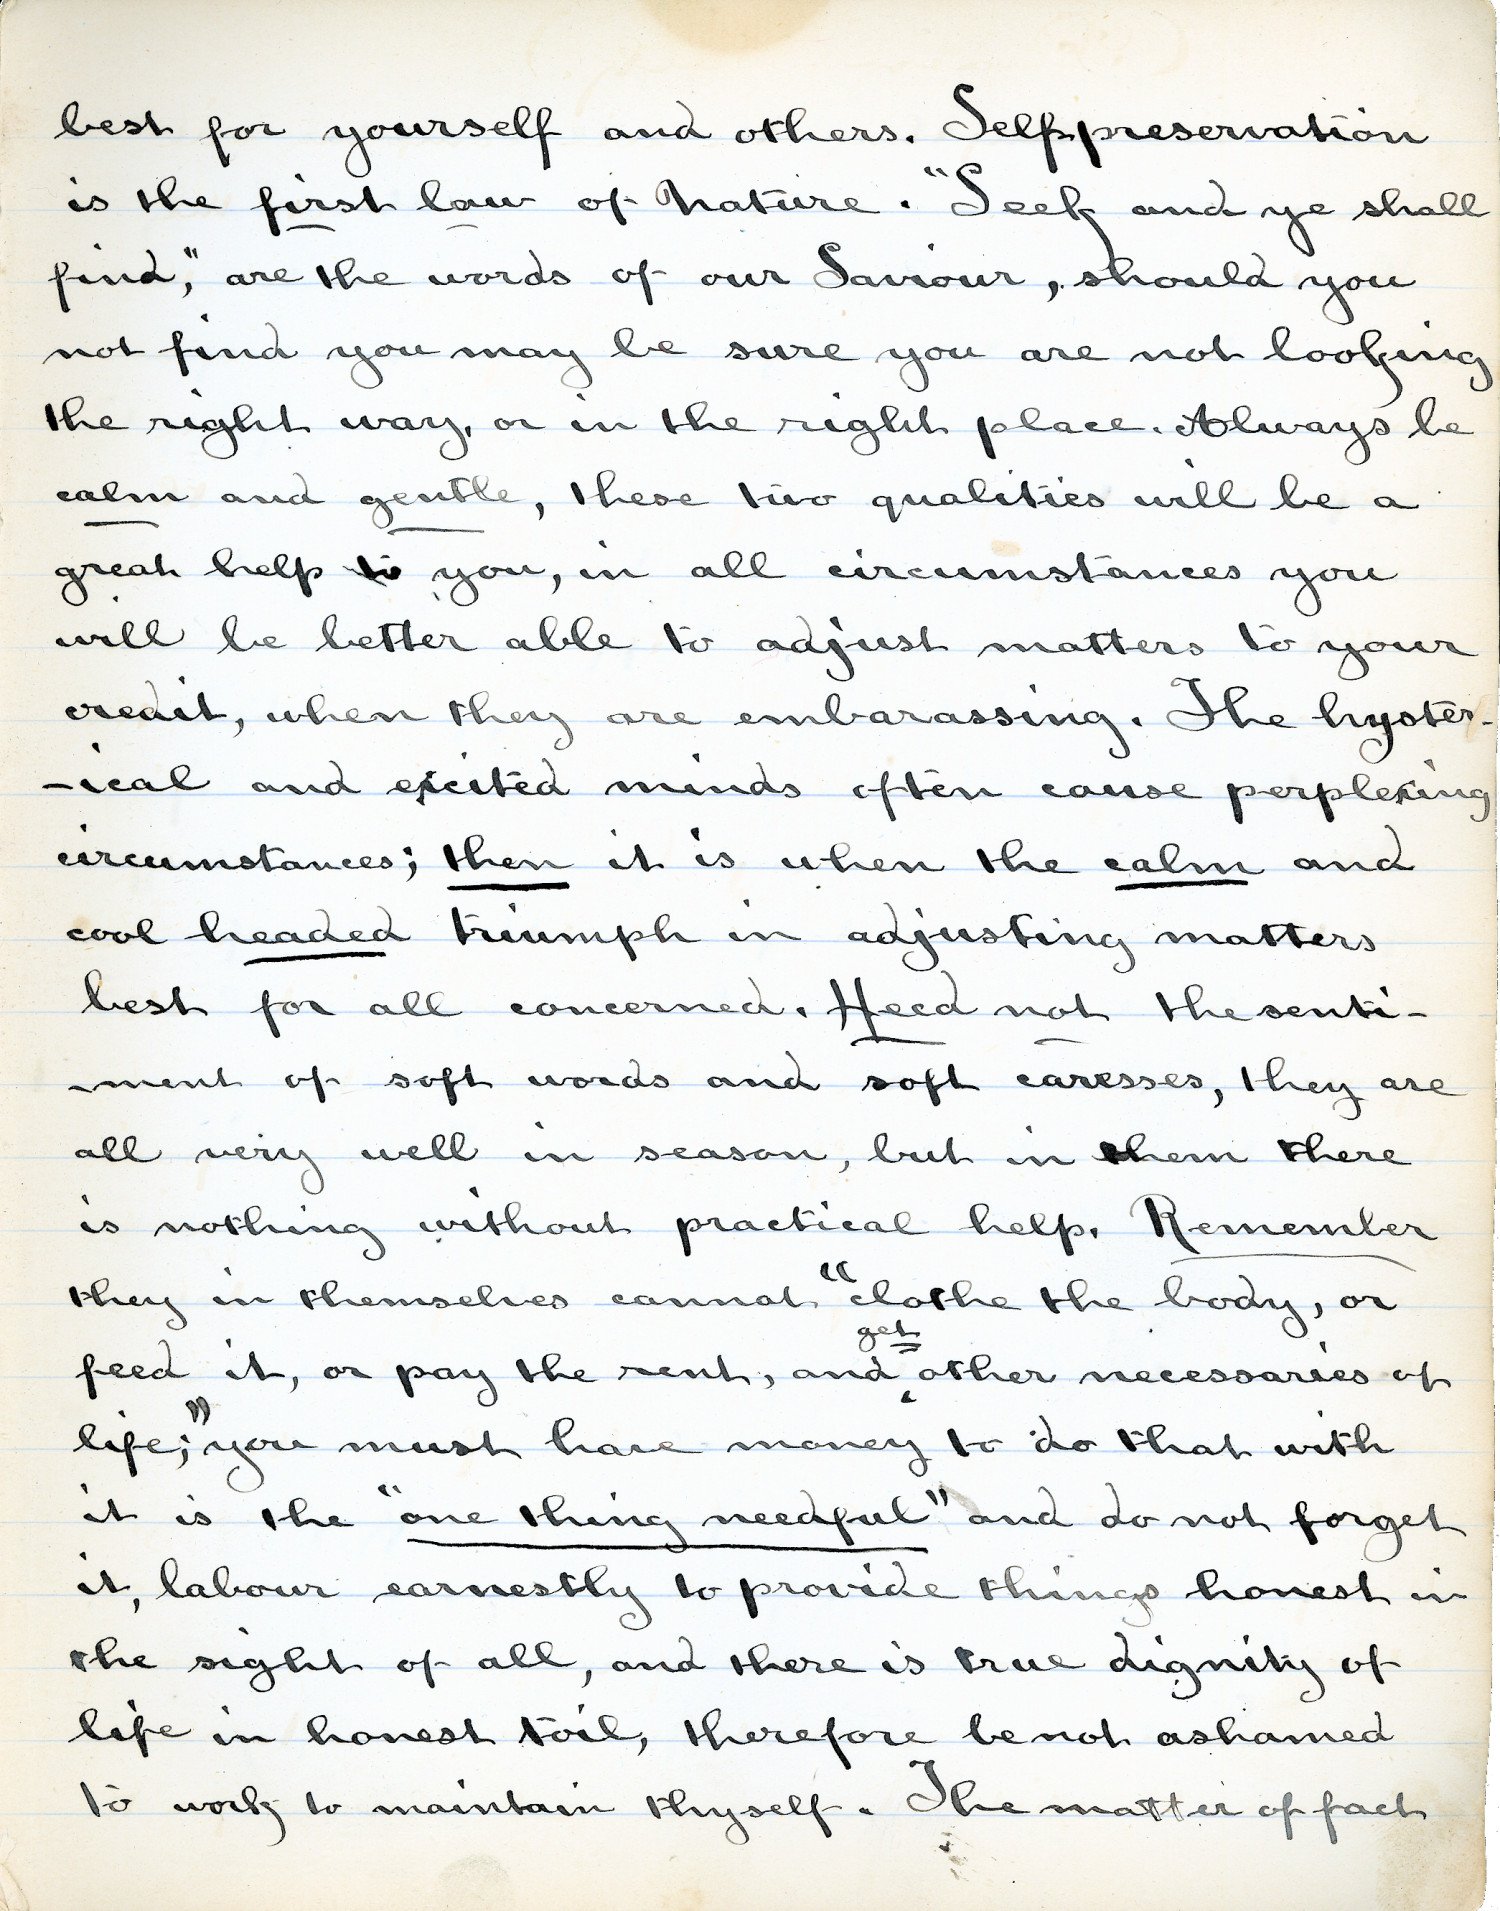 best for yourself and others. Selfpreservation
is the first law of Nature. "Seek and ye shall
find," are the words of our Saviour, should you
not find you may be sure you are not looking
the right way, or in the right place. Always be
calm and gentle, these two qualities will be a
great help to you, in all circumstances you
will be better able to adjust matters to your
credit, when they are embarassing. The hyster-
-ical and excited minds often cause perplexing
circumstances; then it is when the calm and
cool headed triumph in adjusting matters
best for all concerned. Heed not the senti-
-ment of soft words and soft caresses, they are
all very well in season, but in them there
is nothing without practical help. Remember
they in themselves cannot "clothe the body, or
get
feed it, or pay the rent, and other necessaries of
life;" you must have money to do that with
it is the "one thing needful" and do not forget
it, labour earnestly to provide things honest in
the sight of all, and there is true dignity of
life in honest toil, therefore be not ashamed
to work to maintain thyself. The matter of fact